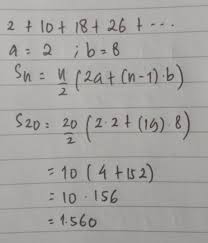 2 + 10 + 18 + 26 + ...
a = 2 ; b = 8
Sn = n/2 (2a + (n-1) . b)
S20 = 20/2 (2.2 + (19) . 8)
= 10 (4 + 152)
= 10 . 156
= 1.560